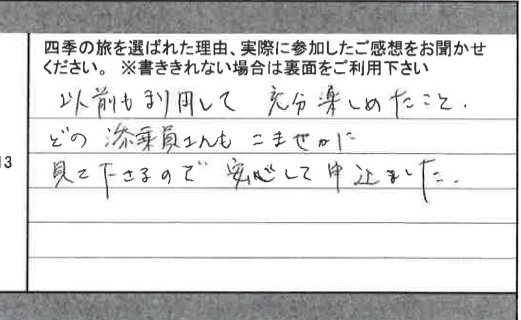 四季の旅を選ばれた理由、実際に参加したご感想をお聞かせ
ください。 ※書ききれない場合は裏面をご利用下さい
以前も利用して 充分楽しめたこと.
どの添乗員さんもこませかに
見て下さるので 安心して申込ました.
13